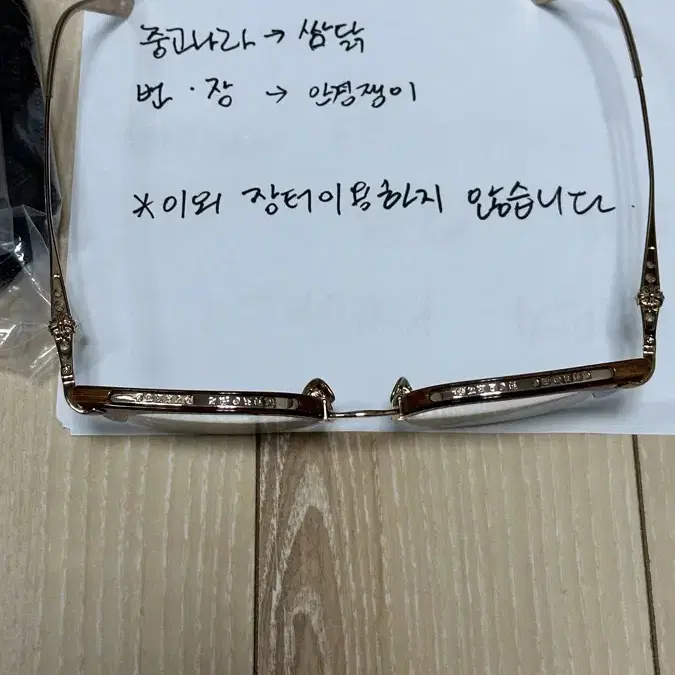 중고나라 → 쌈닭
번·장 → 안경쟁이
*이외 장터이용하지 않습니다.